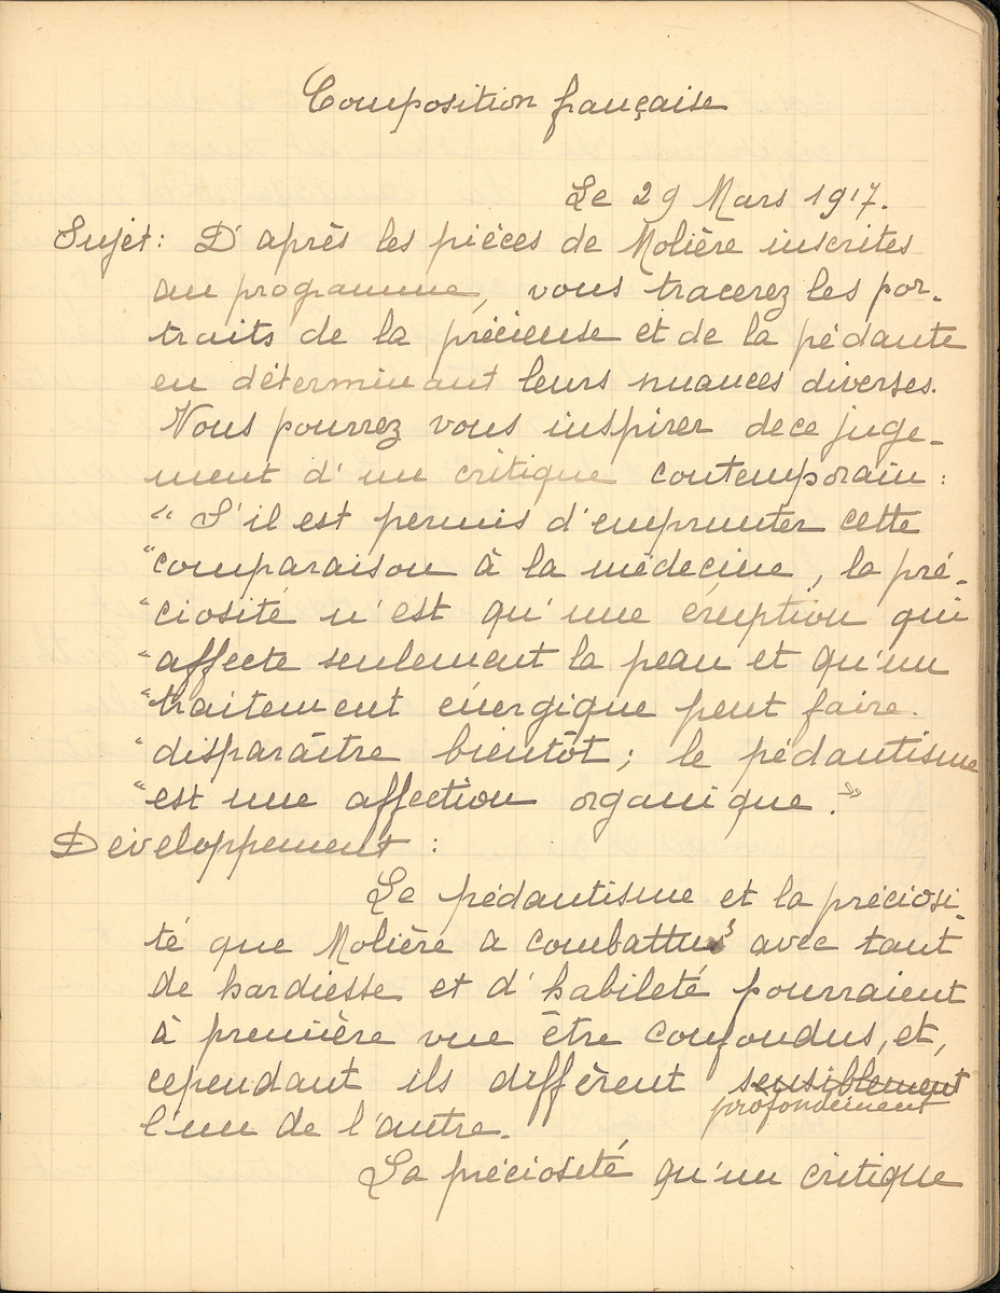 Composition française
Le 29 Mars 1917.
Sujet : D'après les pièces de Molière inscrites
au programme, vous tracerez les por-
traits de la précieuse et de la pédante
en déterminant leurs nuances diverses.
Vous pourrez vous inspirer de ce juge-
ment d'un critique contemporain :
" S'il est permis d'emprunter cette
"comparaison à la médecine, la pré-
"ciosité n'est qu'une éruption qui
"affecte seulement la peau et qu'un
"traitement énergique peut faire
"disparaître bientôt ; le pédantisme
"est une affection organique."
Développement :
Le pédantisme et la préciosi-
té que Molière a combattus avec tant
de hardiesse et d'habileté pourraient
à première vue être confondus, et,
cependant ils diffèrent sensiblement
profondément
l'un de l'autre.
La préciosité qu'un critique